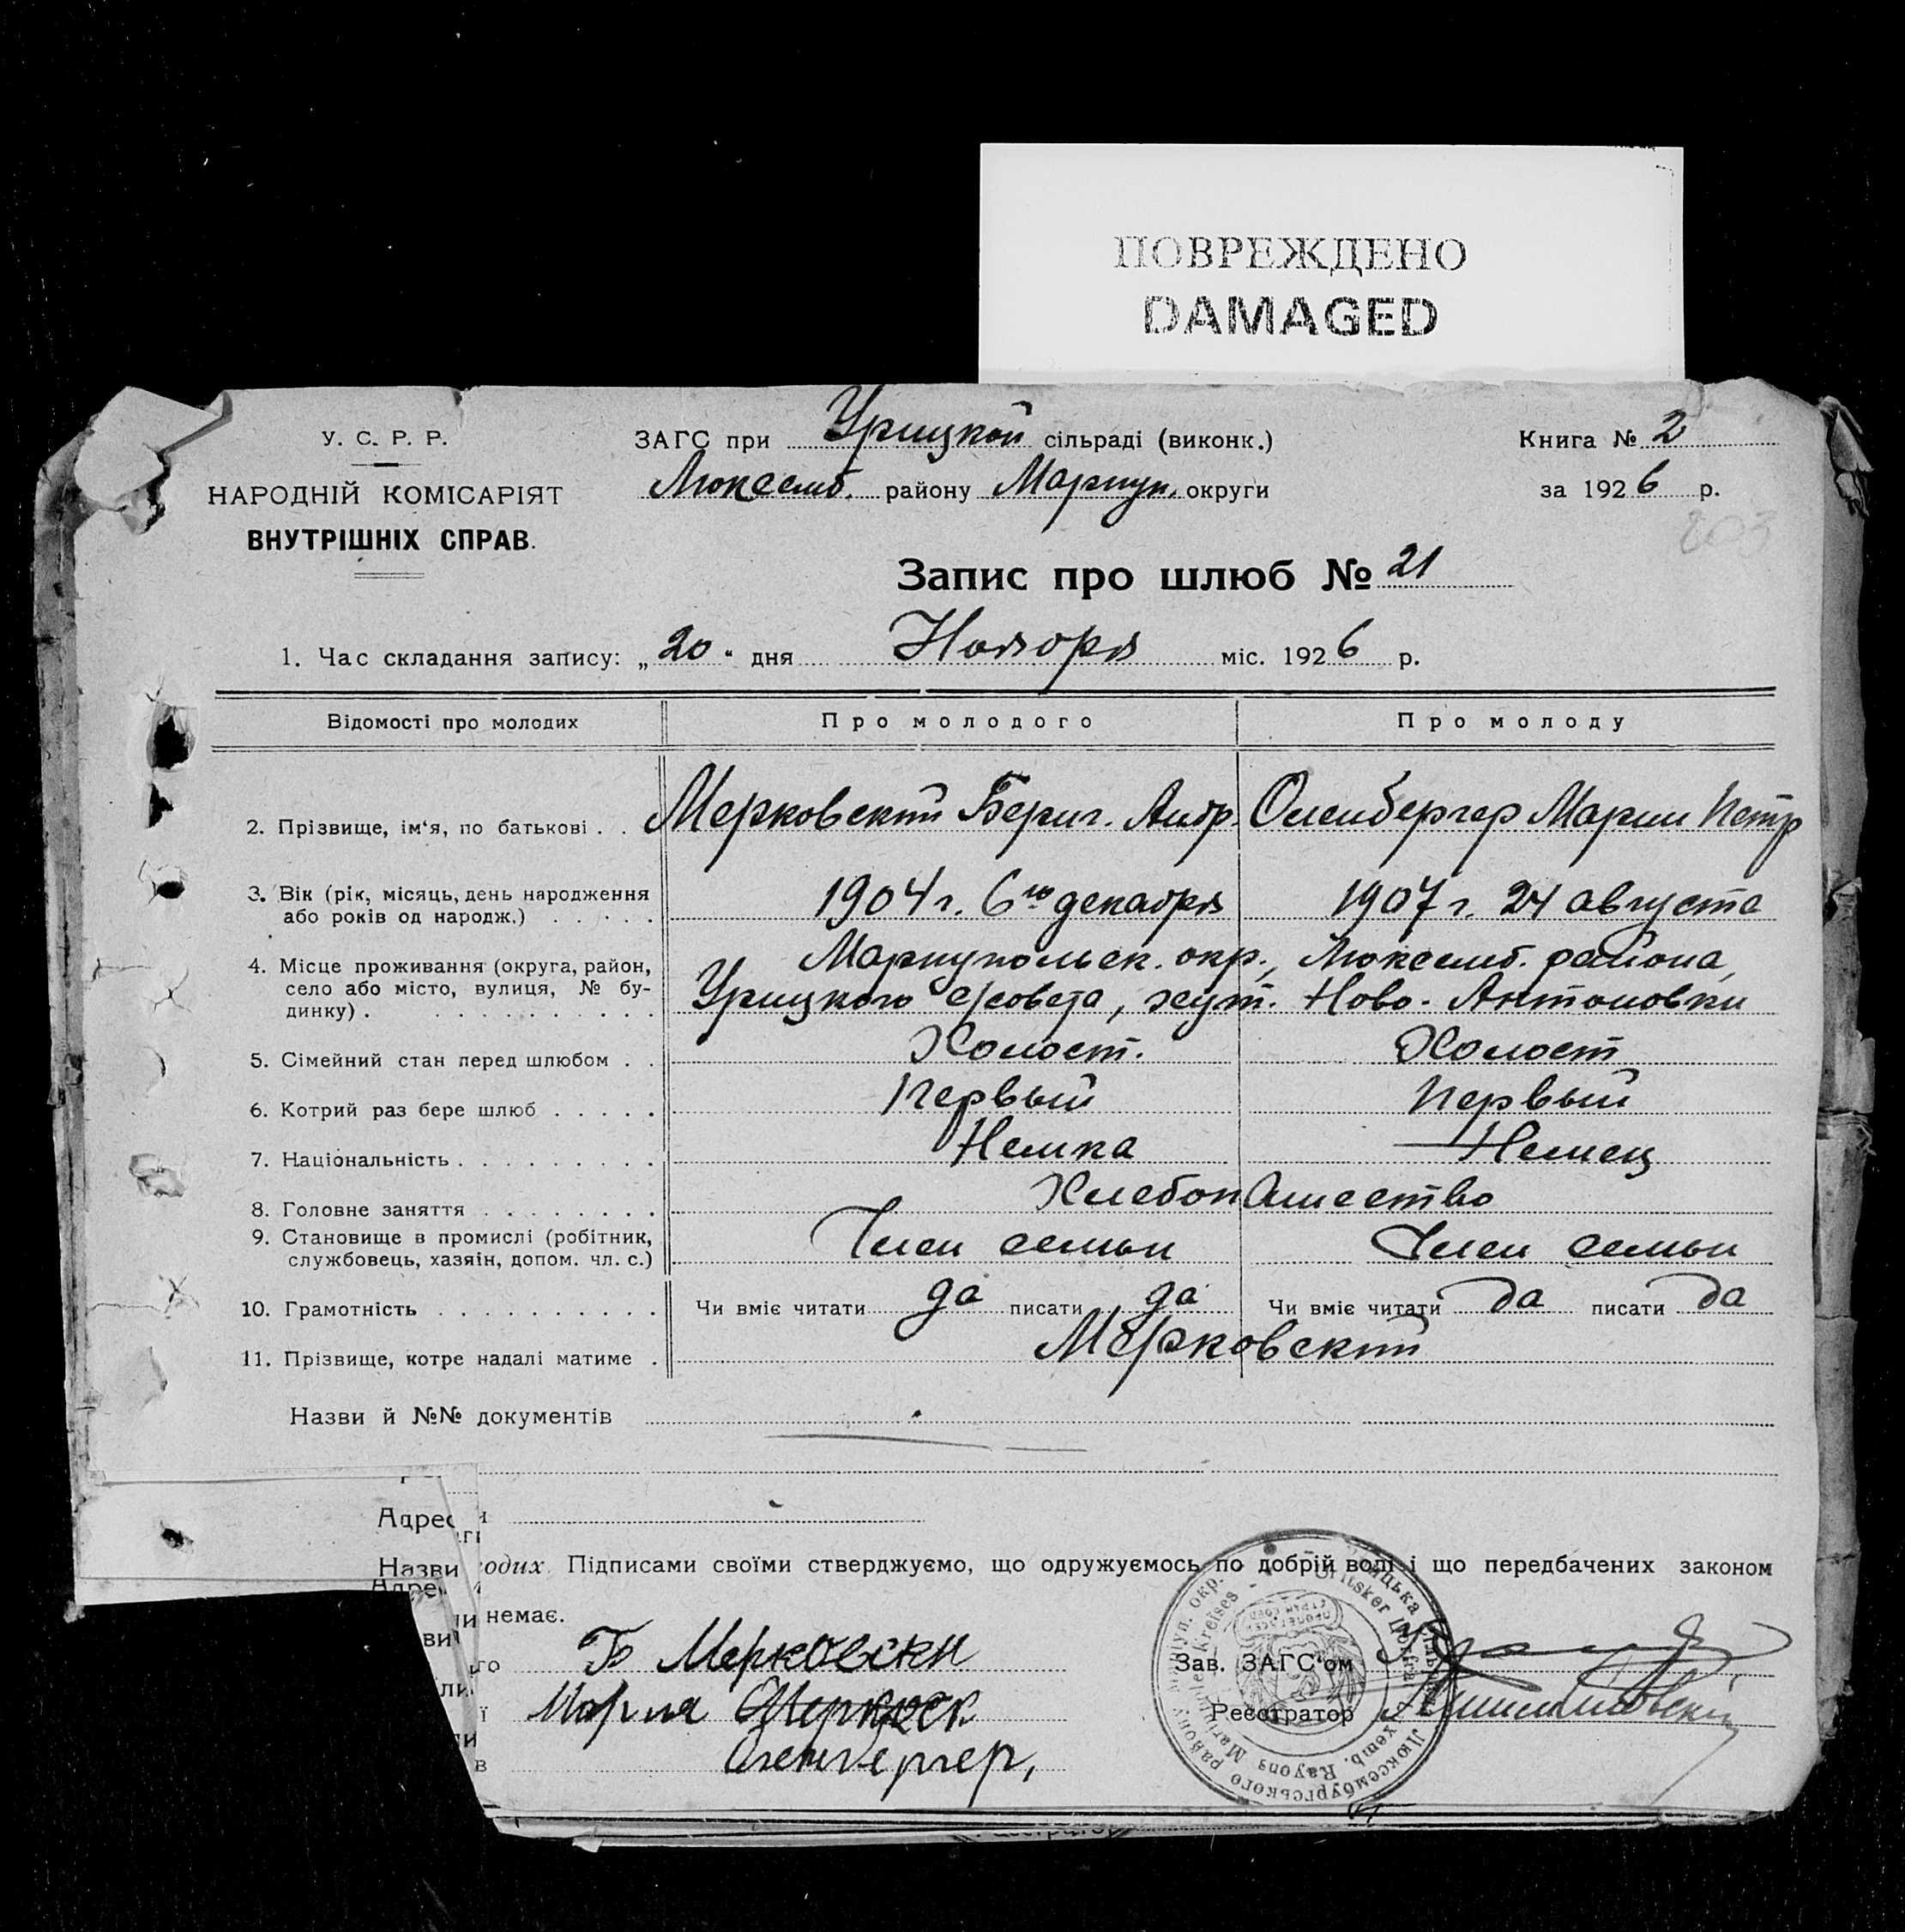 ПОВРЕЖДЕНО
DAMAGED
У. С. Р. Р.
НАРОДНІЙ КОМІСАРІЯТ
ВНУТРІШНІХ СПРАВ.
ЗАГС при Урицкой сільраді (виконк.)
Люксемб. району Мариуп. округи
Книга № 2
за 1926 р.
203
Запис про шлюб № 21
1. Час складання запису: „20" дня Ноября міс. 1926 р.
Відомості про молодих Про молодого Про молоду
2. Прізвище, ім'я, по батькові . . Мерковский Берн. Андр. Оленбергер Мария Петр
3. Вік (рік, місяць, день народження
або років од народж.) . . . . . 1904 г. 6го декабря 1907 г. 24 августа
4. Місце проживання (округа, район,
село або місто, вулиця, № бу-
динку) . . . . . . . . . . .
Мариупольск. окр., Люксемб. района,
Урицкого с/совета, хут. Ново-Антоновки
5. Сімейний стан перед шлюбом . . Холост. Холост
6. Котрий раз бере шлюб . . . . . Первый Первый
7. Національність . . . . . . . . . Немка Немец
8. Головне заняття . . . . . . . . Хлебопашество
9. Становище в промислі (робітник,
службовець, хазяїн, допом. чл. с.) Член семьи Член семьи
10. Грамотність . . . . . . . . . . Чи вміє читати да писати да Чи вміє читати да писати да
11. Прізвище, котре надалі матиме . Мерковский
Назви й №№ документів
Адрес
Назви одих Підписами своїми стверджуємо, що одружуємось по добрій волі і що передбачених законом
Адре
немає.
Б Мерковски
Мария Мерковск
Оленбергер,
Зав. ЗАГС'ом
Реєстратор
Люксембургського району Маріупул. окр.
Mariupoler Kreises
Uritsker Dorfrat
Luxemb. Rayons